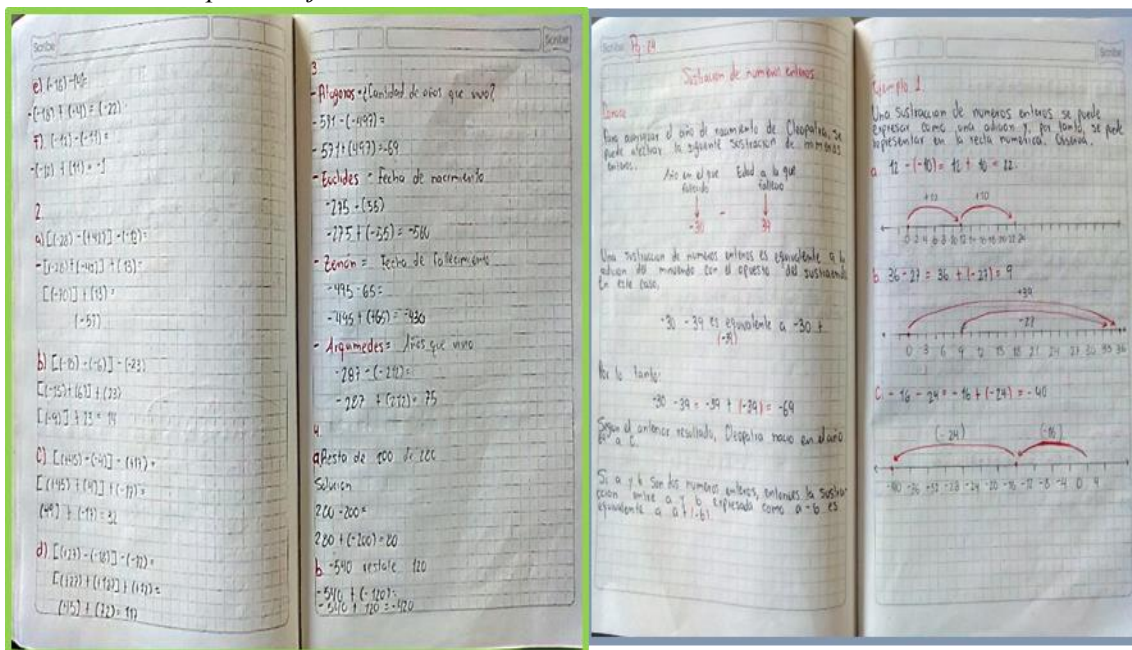 Scribe
e) (-18)-(4)=
-(-18) + (-4) = (-22)
f). (-12)-(-11) =
-(-12) + (11) = -1
2.
a) [(-28) - (+42)] - (-13)=
-[(-28)+(-42)] + (13)=
[(-70)] + (13) =
(-57)
b) [(-15) - (-6)] - (-23)
[(-15)+(6)] + (23)
[(-9)] + 23 = 14
C) [(+45) - (-4)] - (+17) =
[(+45) + (4)] + (-17) =
(49) + (-17) = 32
d) [(+27) - (-18)] - (-72) =
(45) + (72) = 117
Scribe
3
- Pitagoras = ¿Cantidad de años que vivo?
- 571 - (-497) =
- Euclides = Fecha de nacimiento
- Zenón = Fecha de fallecimiento
-495 - 65 =
- 495 + (+65) = -430
- Arquimedes = Años que vivio
-287 - (-212)=
- 287 + (212) = 75
4.
a Resta de 200 de 220
Solucion
220 + (-200) = 20
b -540 restale 120
-540 + (-120)=
-540 + 120 = -420
Scribe Pg-24
Sustracion de numeros enteros
Conoce
Para averiguar el año de nacimiento de Cleopatra, se
puede efectuar la siguiente sustracion de numeros
enteros.
Año en el que Edad a la que
fallecio fallecio
-30 - 39
Una sustracion de numeros enteros es equivalente a la
adicion del minuendo con el opuesto del sustraendo
En este caso,
-30 - 39 es equivalente a -30 +
(-39)
Por lo tanto:
-30 - 39 = -39 + (-39) = -69
Segun el anterior resultado, Cleopatra nacio en el año
69 a C.
Si a y b son dos numeros enteros, entonces la sustra-
cion entre a y b expresada como a - b es
equivalente a a + (-b)
Scribe
Ejemplo 1.
Una sustracion de numeros enteros se puede
expresar como una adicion y, por tanto, se puede
representar en la recta numerica. Observa.
a 12 - (-10) = 12 + 10 = 22.
+12 +10
0 2 4 6 8 10 12 14 16 18 20 22 24
b. 36 - 27 = 36 + (-27) = 9
+39
-27
0 3 6 9 12 15 18 21 24 27 30 33 36
C. - 16 - 24 = - 16 + (-24) = - 40
(-24) (-16)
-40 -36 -32 -28 -24 -20 -16 -12 -8 -4 0 4